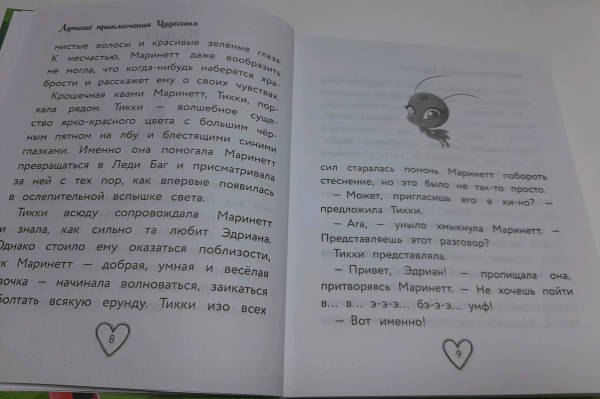 Лучшие приключения Чудесных
нистые волосы и красивые зелёные глаза.
К несчастью, Маринетт даже вообразить
не могла, что когда-нибудь наберётся хра-
брости и расскажет ему о своих чувствах.
Крошечная квами Маринетт, Тикки, пор-
хала рядом. Тикки — волшебное суще-
ство ярко-красного цвета с большим чёр-
ным пятном на лбу и блестящими синими
глазками. Именно она помогала Маринетт
превращаться в Леди Баг и присматривала
за ней с тех пор, как впервые появилась
в ослепительной вспышке света.
Тикки всюду сопровождала Маринетт
и знала, как сильно та любит Эдриана.
Однако стоило ему оказаться поблизости,
к Маринетт — добрая, умная и весёлая
вочка — начинала волноваться, заикаться
болтать всякую ерунду. Тикки изо всех
8
сил старалась помочь Маринетт побороть
стеснение, но это было не так-то просто.
— Может, пригласишь его в ки-но? —
предложила Тикки.
— Ага, — уныло хмыкнула Маринетт. —
Представляешь этот разговор?
Тикки представляла.
— Привет, Эдриан! — пропищала она,
притворяясь Маринетт. — Не хочешь пойти
в... в... э-э-э... бэ-э-э... умф!
— Вот именно!
9